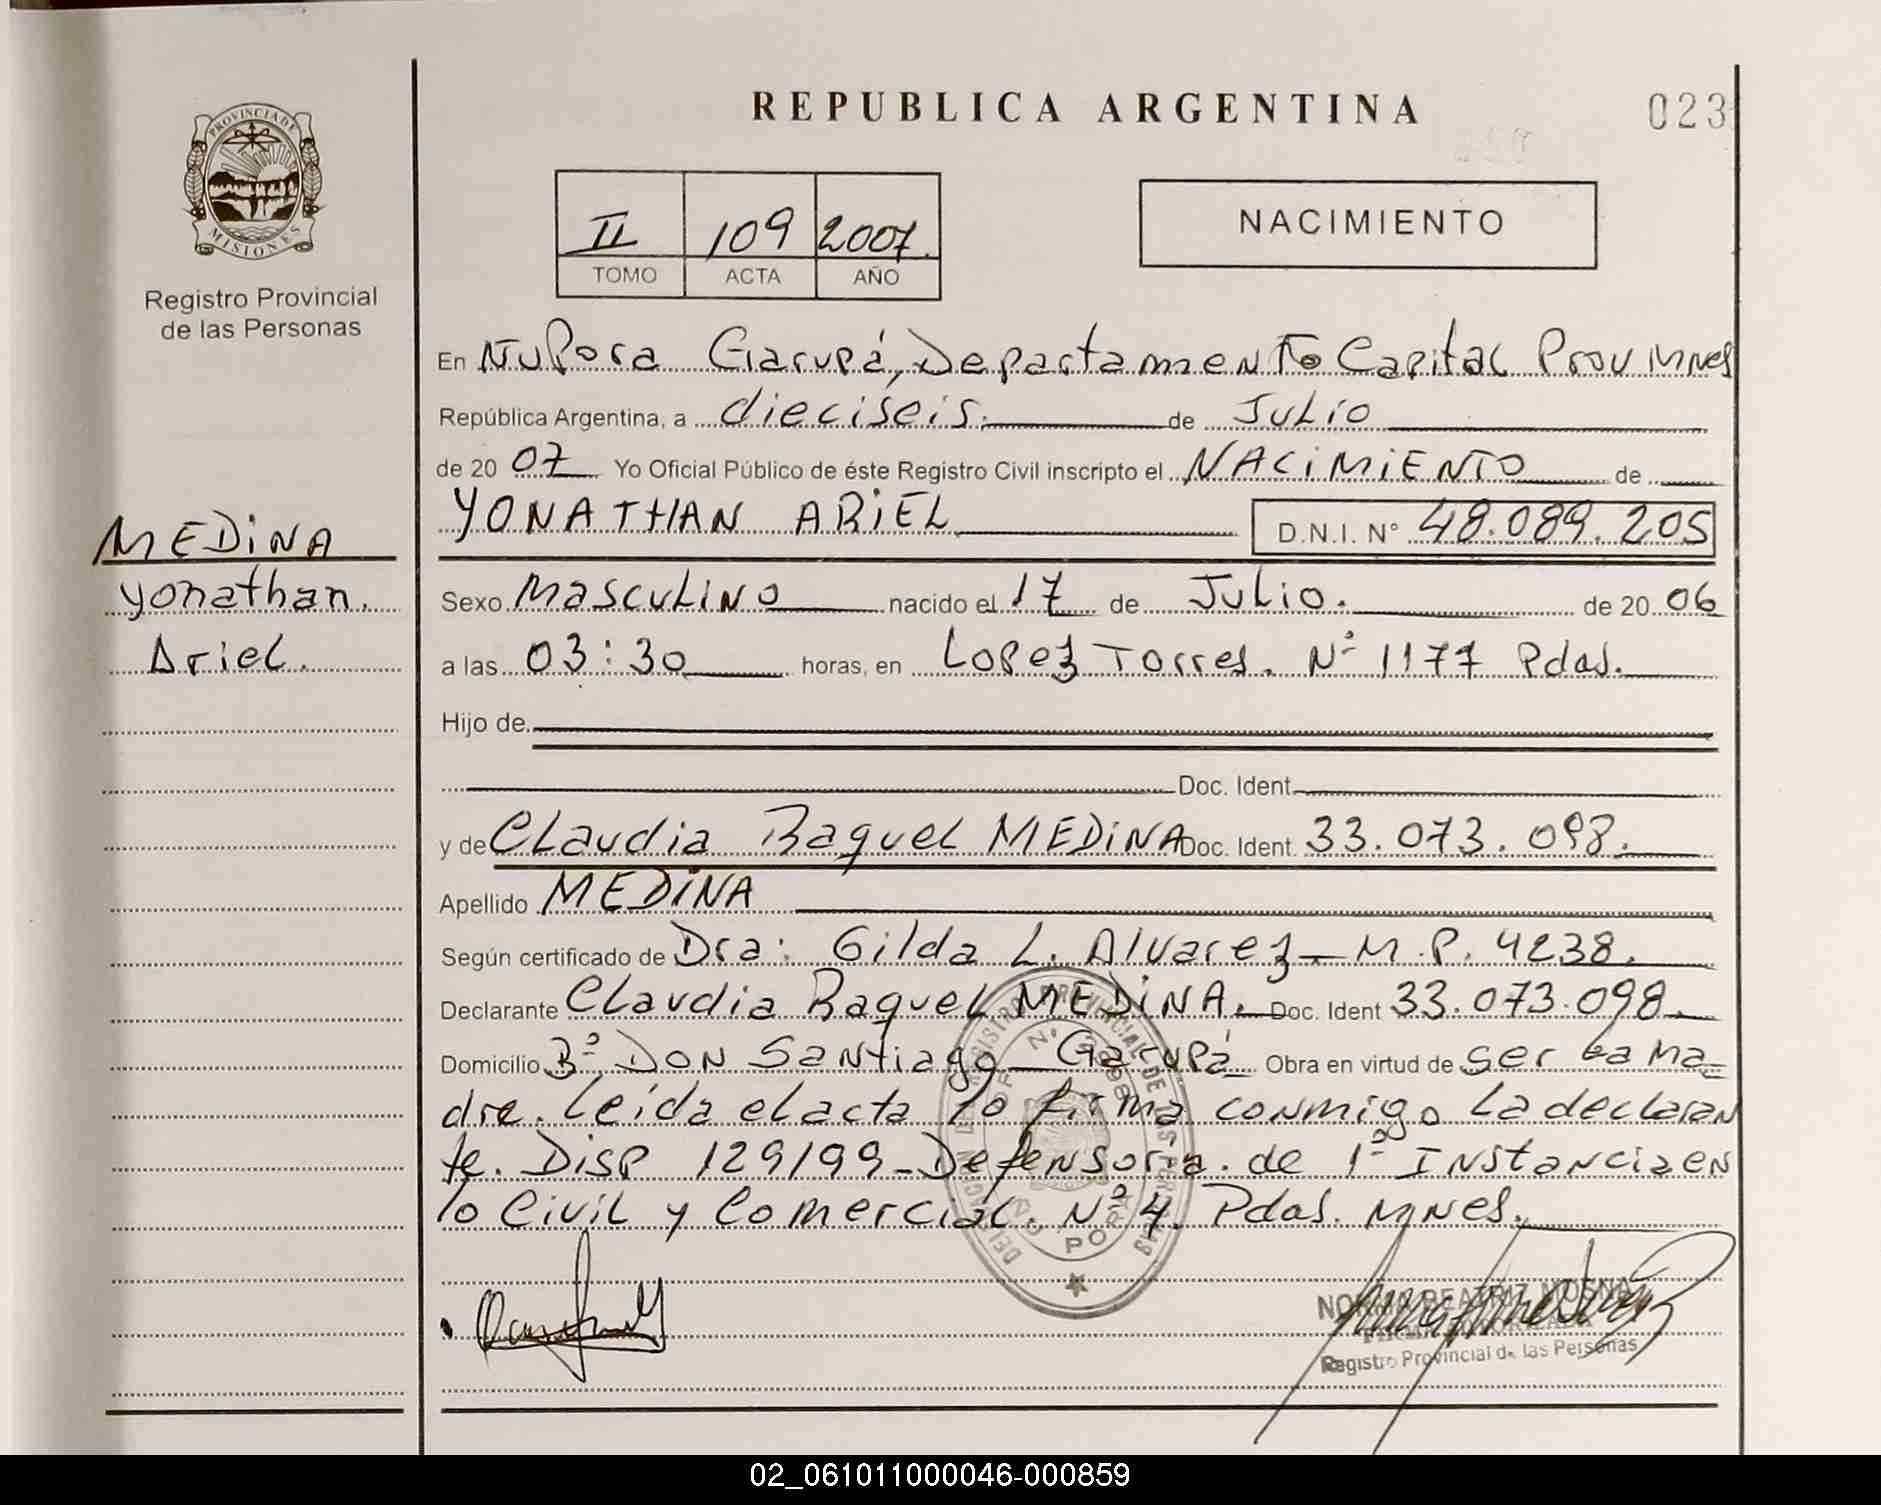 REPUBLICA ARGENTINA
023
PROVINCIA DE
MISIONES
Registro Provincial
de las Personas
II 109 2007.
TOMO ACTA AÑO
NACIMIENTO
En ÑuPora Garupá, Departamento Capital Prov Mnes
República Argentina, a dieciseis. de Julio
de 20 07 Yo Oficial Público de éste Registro Civil inscripto el NACIMIENTO de
YONATHAN ARIEL D.N.I. N° 48.089.205
MEDINA
Yonathan.
Ariel.
Sexo Masculino nacido el 17 de Julio. de 20 06
a las 03:30 horas, en Lopez Torres. Nº 1177 Pdas.
Hijo de
Doc. Ident.
y de Claudia Raquel MEDINA Doc. Ident. 33.073.098.
Apellido MEDINA
Según certificado de Dra: Gilda L. Alvarez - M.P. 4238.
Declarante Claudia Raquel MEDINA. Doc. Ident 33.073.098.
Domicilio Bº Don Santiago - Garupá Obra en virtud de ser la ma-
dre. Leída el acta lo firma conmigo la declaran
te. Disp 129/99 - Defensoria de 1º Instancia en
lo Civil y Comercial. Nº 4. Pdas. Mnes.
DELEGACION DEL REGISTRO PROVINCIAL DE LAS PERSONAS
ÑU PORA
NORMA BEATRIZ MOSNA
Registro Provincial de las Personas
02_061011000046-000859